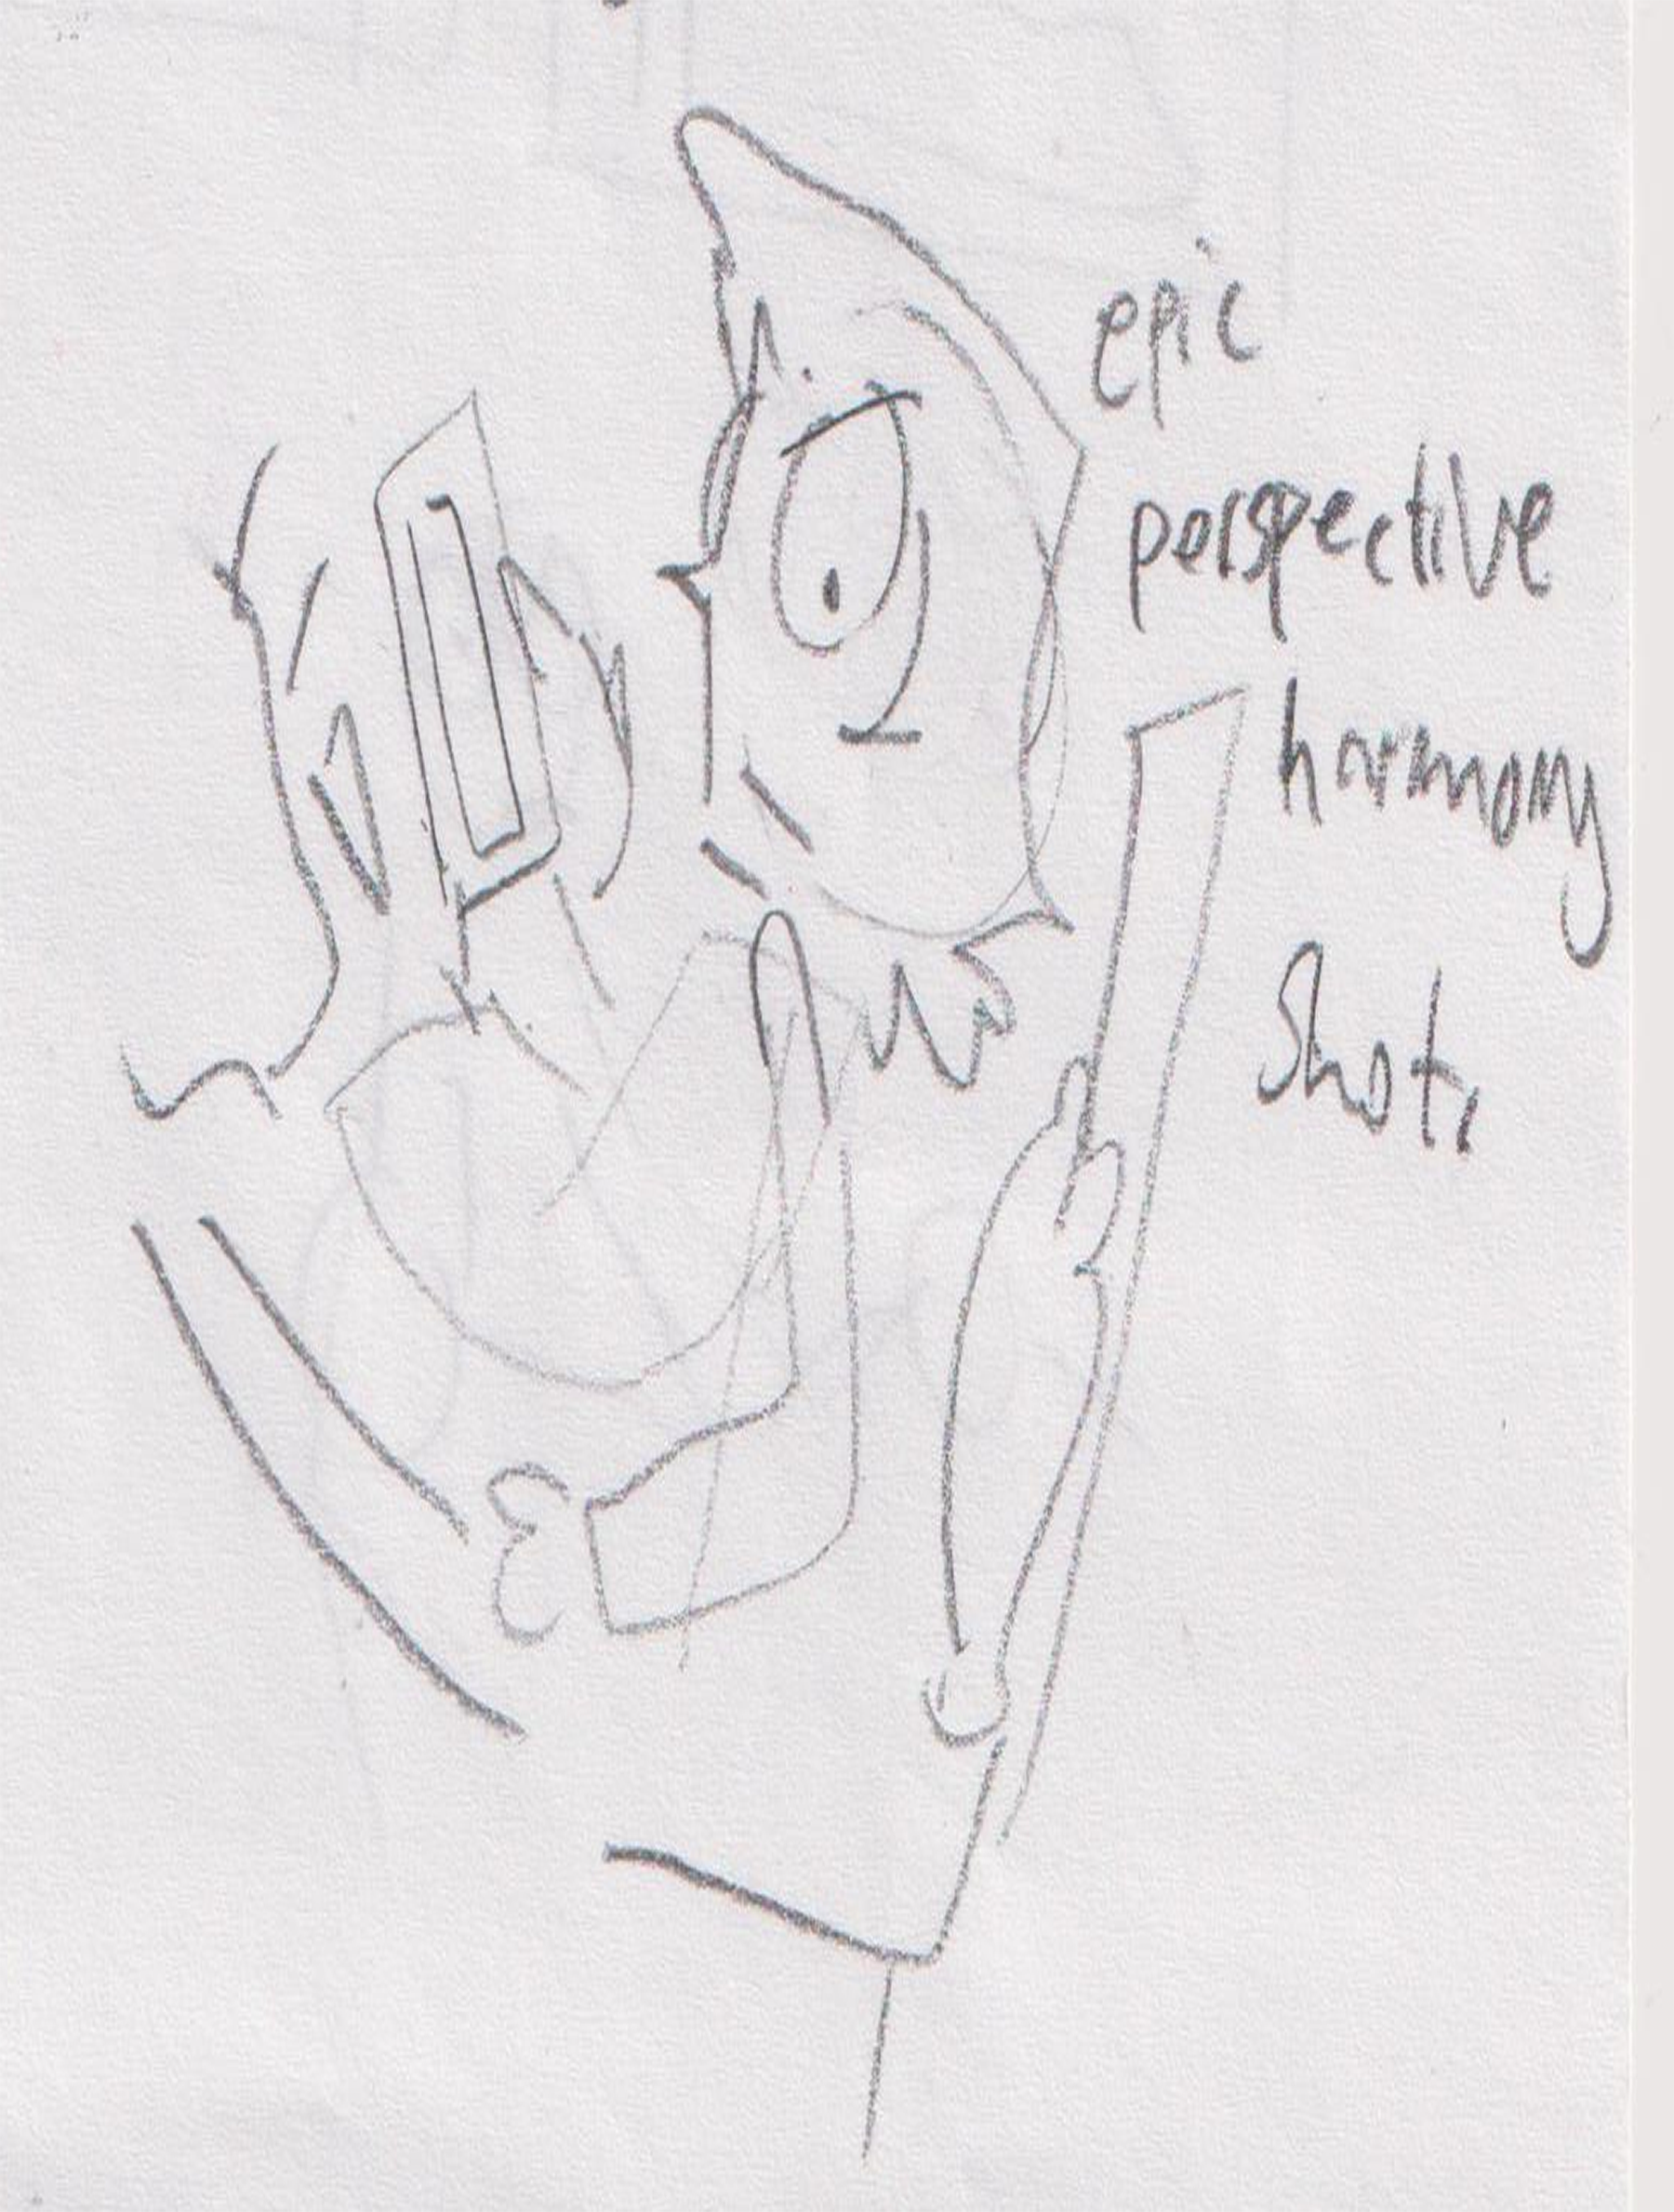 epic
perspective
harmony
Shot,